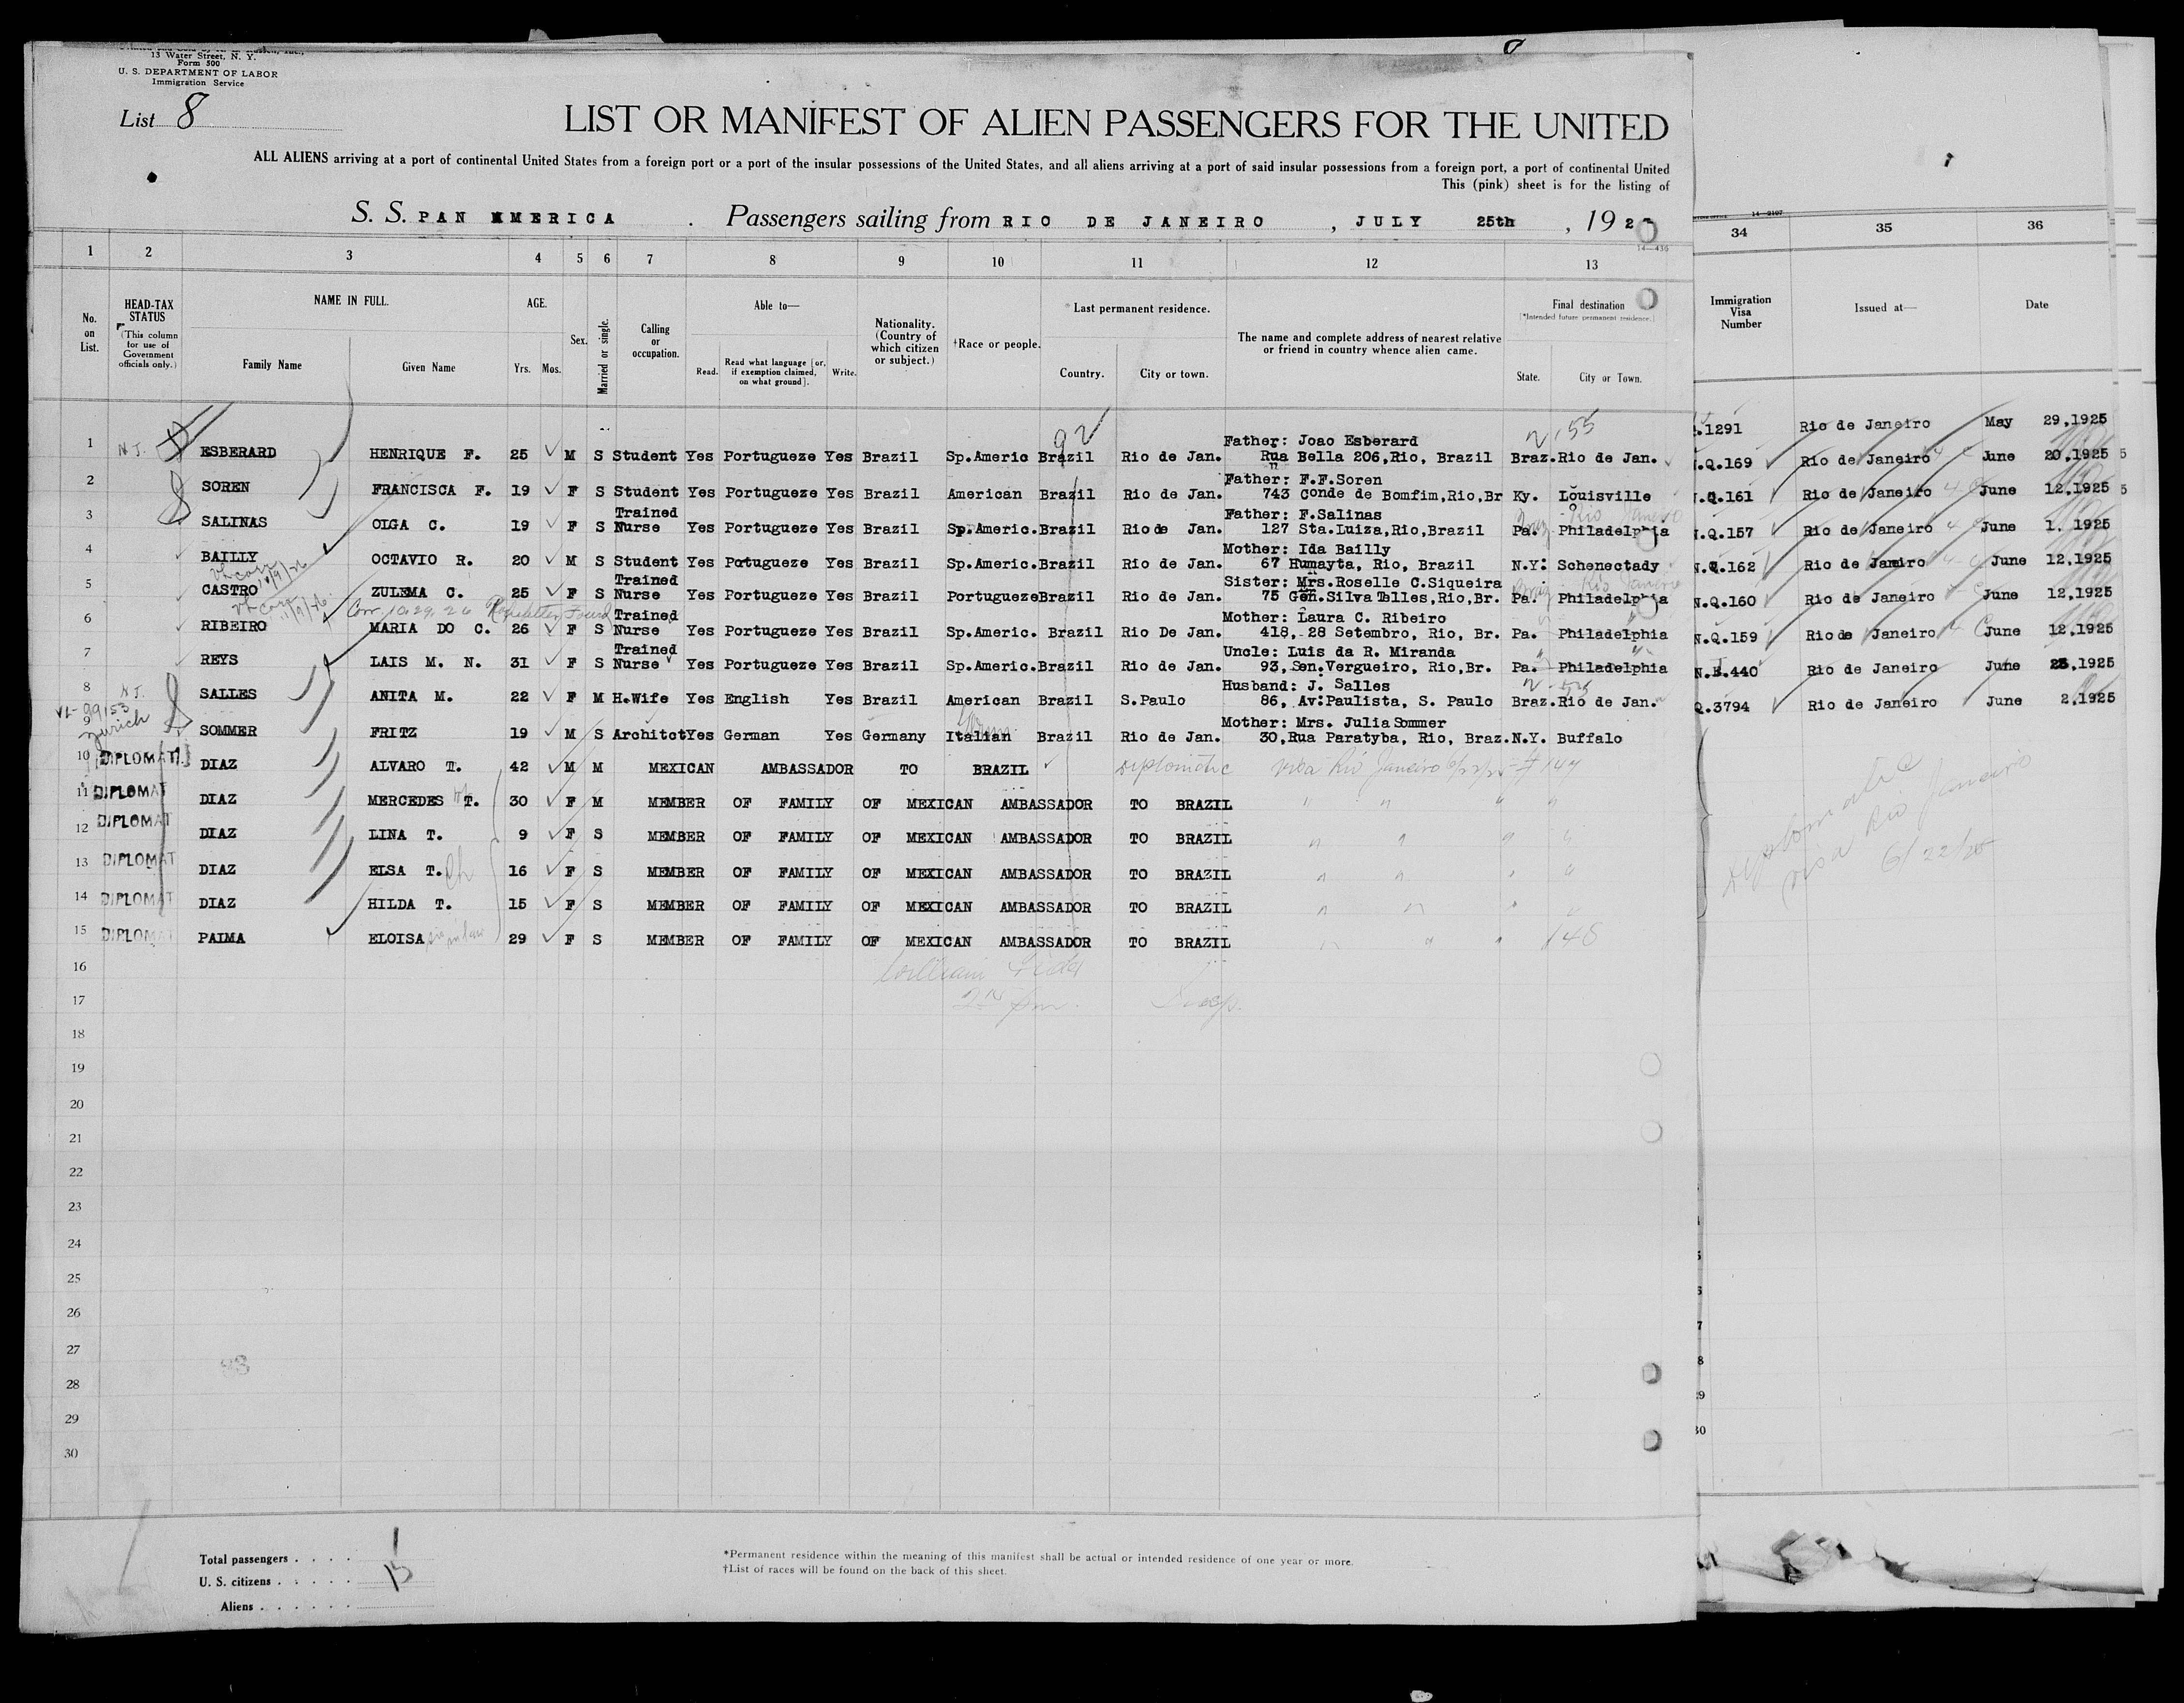 13 Water Street, N. Y.
Form 500
U. S. DEPARTMENT OF LABOR
Immigration Service
List 8
LIST OR MANIFEST OF ALIEN PASSENGERS FOR THE UNITED
ALL ALIENS arriving at a port of continental United States from a foreign port or a port of the insular possessions of the United States, and all aliens arriving at a port of said insular possessions from a foreign port, a port of continental United
This (pink) sheet is for the listing of
S. S. PAN AMERICA . Passengers sailing from RIO DE JANEIRO , JULY 25th , 19 2
14—436
1 2 3 4 5 6 7 8 9 10 11 12 13 34 35 36
No. on List.
HEAD-TAX STATUS
(This column for use of Government officials only.)
NAME IN FULL.
Family Name Given Name
AGE.
Yrs. Mos.
Sex.
Married or single.
Calling or occupation.
Able to—
Read. Read what language [or, if exemption claimed, on what ground]. Write.
Nationality. (Country of which citizen or subject.)
†Race or people.
*Last permanent residence.
Country. City or town.
The name and complete address of nearest relative or friend in country whence alien came.
Final destination
[*Intended future permanent residence.]
State. City or Town.
Immigration Visa Number
Issued at—
Date
92
2,55
1 N J. ESBERARD HENRIQUE F. 25 M S Student Yes Portugueze Yes Brazil Sp.Americ Brazil Rio de Jan. Father: Joao Esberard
Rua Bella 206,Rio, Brazil Braz. Rio de Jan. .1291 Rio de Janeiro May 29,1925
2 SOREN FRANCISCA F. 19 F S Student Yes Portugueze Yes Brazil American Brazil Rio de Jan. Father: F.F.Soren
743 Conde de Bomfim,Rio,Br Ky. Louisville N.Q.169 Rio de Janeiro June 20,1925
3 SALINAS OLGA C. 19 F S Trained Nurse Yes Portugueze Yes Brazil Sp.Americ. Brazil Rio de Jan. Father: F.Salinas
127 Sta.Luiza,Rio,Brazil Pa. Philadelphia N.Q.161 Rio de Janeiro June 12,1925
4 BAILLY OCTAVIO R. 20 M S Student Yes Potugueze Yes Brazil Sp.Americ. Brazil Rio de Jan. Mother: Ida Bailly
67 Humayta, Rio, Brazil N.Y: Schenectady N.Q.157 Rio de Janeiro June 1. 1925
5 CASTRO ZULEMA C. 25 F S Trained Nurse Yes Portugueze Yes Brazil Portugueze Brazil Rio de Jan. Sister: Mrs.Roselle C.Siqueira
75 Gen.Silva Telles,Rio,Br. Pa. Philadelphia N.Q.162 Rio de Janiro June 12,1925
Corr. 10 29, 26
6 RIBEIRO MARIA DO C. 26 F S Trained Nurse Yes Portugueze Yes Brazil Sp.Americ. Brazil Rio De Jan. Mother: Laura C. Ribeiro
418, 28 Setembro, Rio, Br. Pa. Philadelphia N.Q.160 Rio de Janeiro June 12,1925
7 REYS LAIS M. N. 31 F S Trained Nurse Yes Portugueze Yes Brazil Sp.Americ. Brazil Rio de Jan. Uncle: Luis da R. Miranda
93, Sen.Vergueiro, Rio,Br. Pa. Philadelphia N.Q.159 Rio de Janeiro June 12,1925
8 N J. SALLES ANITA M. 22 F M H.Wife Yes English Yes Brazil American Brazil S.Paulo Husband: J. Salles
86, Av:Paulista, S. Paulo Braz. Rio de Jan. 440 Rio de Janeiro June 1925
9 Zurich SOMMER FRITZ 19 M S Architct Yes German Yes Germany Italian Brazil Rio de Jan. Mother: Mrs. Julia Sommer
30,Rua Paratyba, Rio, Braz. N.Y. Buffalo Q.3794 Rio de Janeiro June 2,1925
10 DIPLOMAT DIAZ ALVARO T. 42 M M MEXICAN AMBASSADOR TO BRAZIL Diplomatic visa Rio Janeiro 6/22/25 # 147
11 DIPLOMAT DIAZ MERCEDES T. 30 F M MEMBER OF FAMILY OF MEXICAN AMBASSADOR TO BRAZIL " " " "
12 DIPLOMAT DIAZ LINA T. 9 F S MEMBER OF FAMILY OF MEXICAN AMBASSADOR TO BRAZIL " " " "
13 DIPLOMAT DIAZ ELSA T. Ch 16 F S MEMBER OF FAMILY OF MEXICAN AMBASSADOR TO BRAZIL " " " "
14 DIPLOMAT DIAZ HILDA T. 15 F S MEMBER OF FAMILY OF MEXICAN AMBASSADOR TO BRAZIL " " " "
15 DIPLOMAT PALMA ELOISA sis in law 29 F S MEMBER OF FAMILY OF MEXICAN AMBASSADOR TO BRAZIL " " " 148
Diplomatic
visa Rio Janeiro
6/22/25
16
17
18
19
20
21
22
23
24
25
26
27
28
29
30
Total passengers . . . .
U. S. citizens . . . . . 15
Aliens . . . . . .
*Permanent residence within the meaning of this manifest shall be actual or intended residence of one year or more.
†List of races will be found on the back of this sheet.